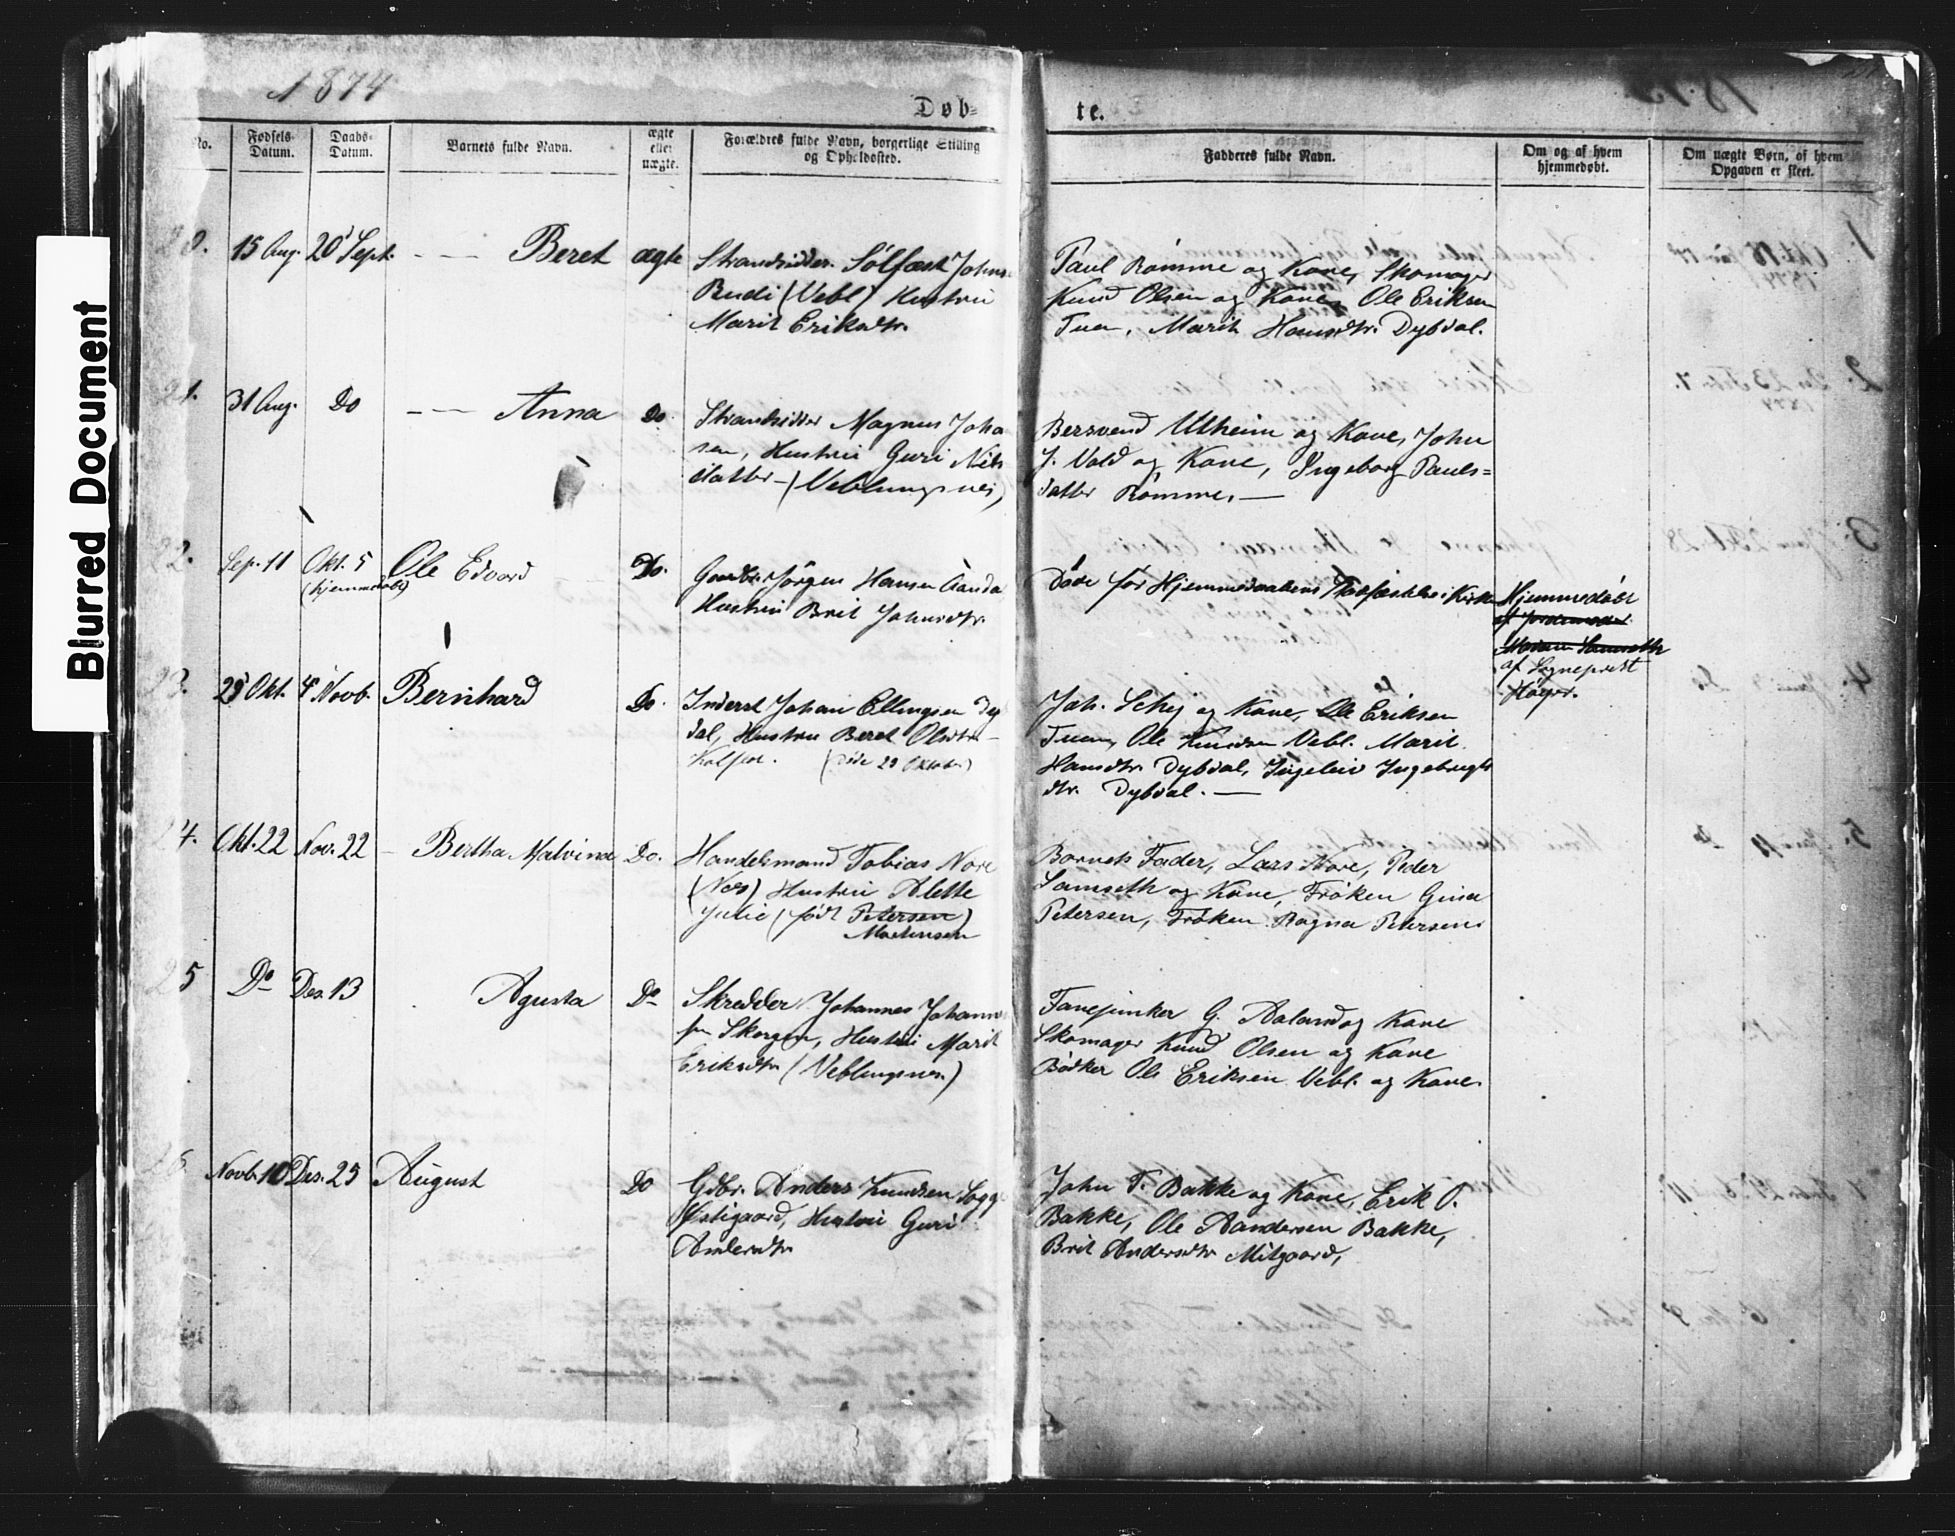 Blurred Document
1874
Døb-
te.
No.
Fødsels-
Datum.
Daabs-
Datum.
Barnets fulde Navn.
ægte
eller
uægte.
Forældres fulde Navn, borgerlige Stilling
og Opholdssted.
Fadderes fulde Navn.
Om og af hvem
hjemmedøbt.
Om uægte Børn, af hvem
Opgaven er skeet.
20. 15 Aug. 20 Sept. Beret ægte
Strandsidder Sølfæst Johns
Rudi (Vebl) Hustru
Marit Eriksdtr.
Paul Rømme og Kone, Skomager
Knud Olsen og Kone, Ole Eriksen
Tuen, Marit Hansdtr. Dybdal.
21. 31 Aug. Do Anna Do.
Strandsidder Magnus Joha
sen, Hustru Guri Nils
datter (Veblungsnes)
Bersvend Utheim og Kone, John
J. Vold og Kone, Ingeborg Pauls=
datter Rømme.
22. Sep. 11 Okt. 5 Ole Edvard Do.
(hjemmedøbt)
Gaardbr. Jørgen Hansen Aanda
Hustru Brit Johnsdtr.
Døde før Hjemmedaabens Stadfæstelse i Kirken
Hjemmedøbt
af Jordemoder
Maren Samseth
af Sogneprest
Høyer.
23. 25 Okt. 4 Novb. Bernhard Do.
Inderst Johan Ellingsen Dyb
dal, Hustru Beret Olsdtr.
(døde 29 Oktob.)
Joh. Schej og Kone, Ole Eriksen
Tuen, Ole Knudsen Vebl. Marit
Hansdtr. Dybdal, Ingeleiv Ingebrigts
dtr. Dybdal.
24. Okt. 22 Nov. 22 Bertha Malvina Do.
Handelsmand Tobias Nore
(Næs) Hustru Alette
Julie (født Petersen)
Martinsen
Barnets Fader, Lars Nore, Peder
Samseth og Kone, Frøken Gina
Petersen, Frøken Ragna Petersen.
25 Do Des. 13 Agusta Do
Skrædder Johannes Johanne
sen Skorgen, Hustru Marit
Eriksdtr (Veblungsnes)
Fanejunker G. Aaland og Kone
Skomager Knud Olsen og Kone
Bødker Ole Eriksen Vebl. og Kone.
26. Novb. 10 Des. 25 August Do
Gdbr. Anders Knudsen Sogge
Østigaard, Hustru Guri
Andersdtr
John T. Bakke og Kone, Erik P.
Bakke, Ole Aandersen Bakke,
Brit Andersdtr Mitgaard,